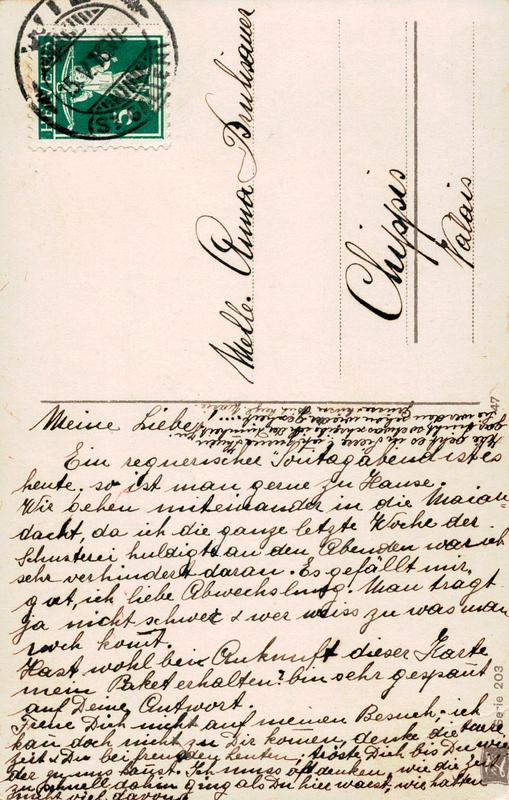 HELVETIA
5
Melle. Anna Bruhsauer
Chippis
Valais
47
Serie 203
Meine Liebe,
Ein regnerischer Sontagabend ist es
heute, so ist man gerne zu Hause.
Wir gehen miteinander in die Maian-
dacht, da ich die ganze letzte Woche der
Schusterei huldigte an den Abenden war ich
sehr verhindert daran. Es gefällt mir
gut, ich liebe Abwechslung. Man tragt
ja nicht schwer & wer weiss zu was man
noch komt.
Hast wohl bei Ankunft dieser Karte
mein Paket erhalten? bin sehr gespant
auf Deine Antwort.
Freue Dich nicht auf meinen Besuch; ich
kan doch nicht zu Dir komen, denke die
zeit & Du bei fremden Leuten, tröste Dich bis Du wie
der zu uns komst. Ich muss oft denken, wie die Zeit
zu schnell dahin ging als Du hier warst, wir hatten
nicht viel davon.